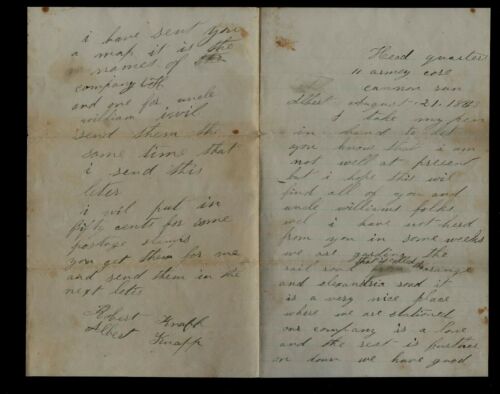 Head quarters
11 armey core
cannon run
Albert august 21. 1863
I take my pen
in hand to let
you know that i am
not well at present
but i hope this wil
find all of you and
uncle williams folks
wel i have not herd
from you in some weeks
we are the
rail road that is called orange
and alexandria road it
is a very nice place
where we are stationed
our company is a lone
and the rest is further
on down we have good
i have sent you
a map it is the
names of
company
and one for uncle
william i wil
send them the
same time that
i send this
leter
i wil put in
fifty cents for some
postage stamps
you get them for me
and send them in the
next leter
Robert Knapp
Albert Knapp